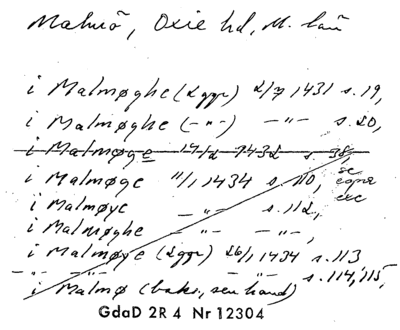 Malmö, Oxie hd, M. län
i Malmøghe (2 ggr) 2/7 1431 s. 19,
i Malmøghe (-"-) -"- s. 20,
i Malmøge 17/2 1432 s. 38,
i Malmøge 11/1 1434 s. 110, se egna exc
i Malmøye -"- s. 112,
i Malmøghe -"- -"- ,
i Malmøye (2 ggr) 26/1 1434 s. 113
-"- -"- -"- s. 114, 115,
i Malmø (baks., sen hand)
GdaD 2R 4 Nr 12304